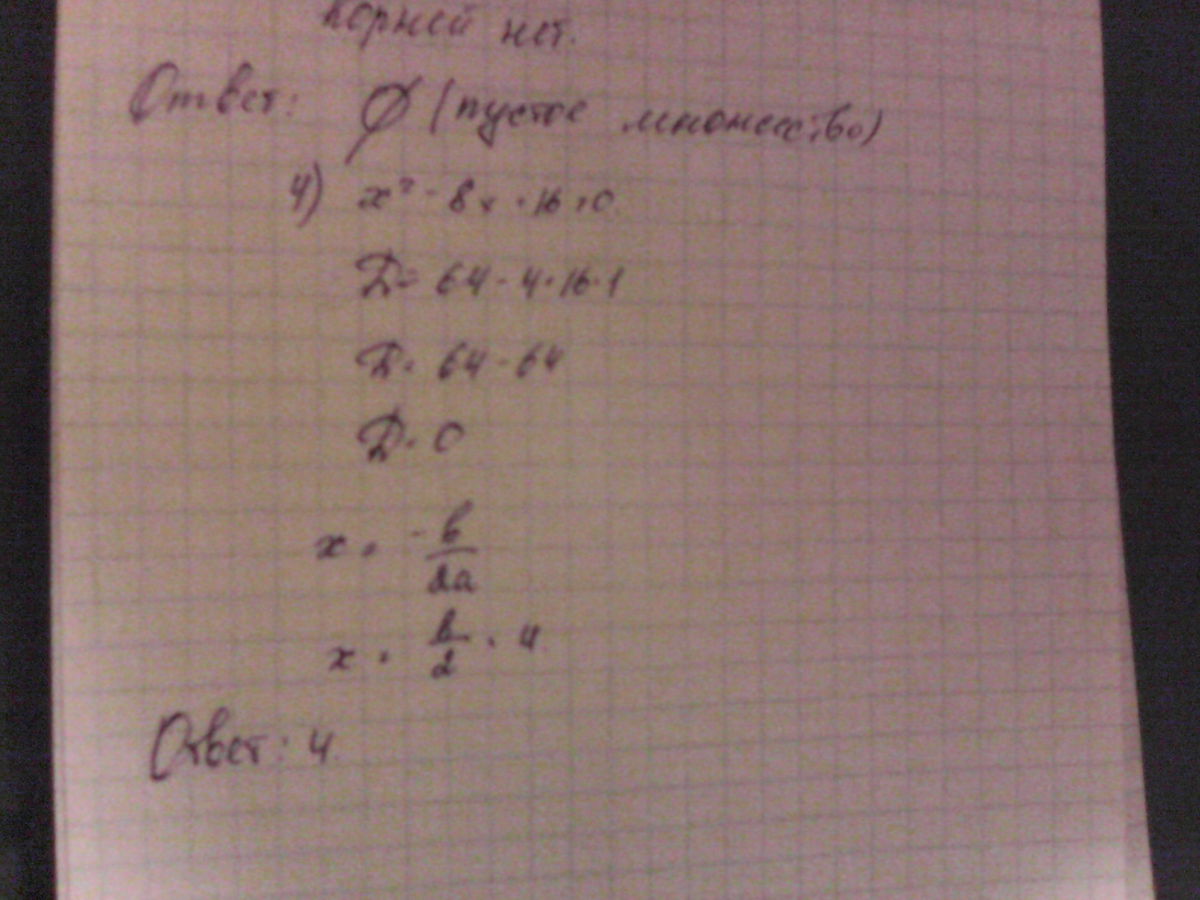 корней нет.
Ответ: Ø (пустое множество)
4) x² - 8x + 16 = 0
D = 64 - 4·16·1
D = 64 - 64
D = 0
x = -b/2a
x = 8/2 = 4
Ответ: 4.